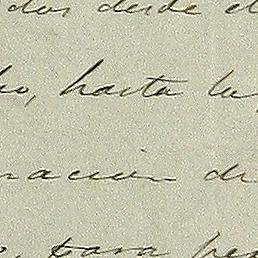 dos desde el
ho, hasta la
nacion de
para pe